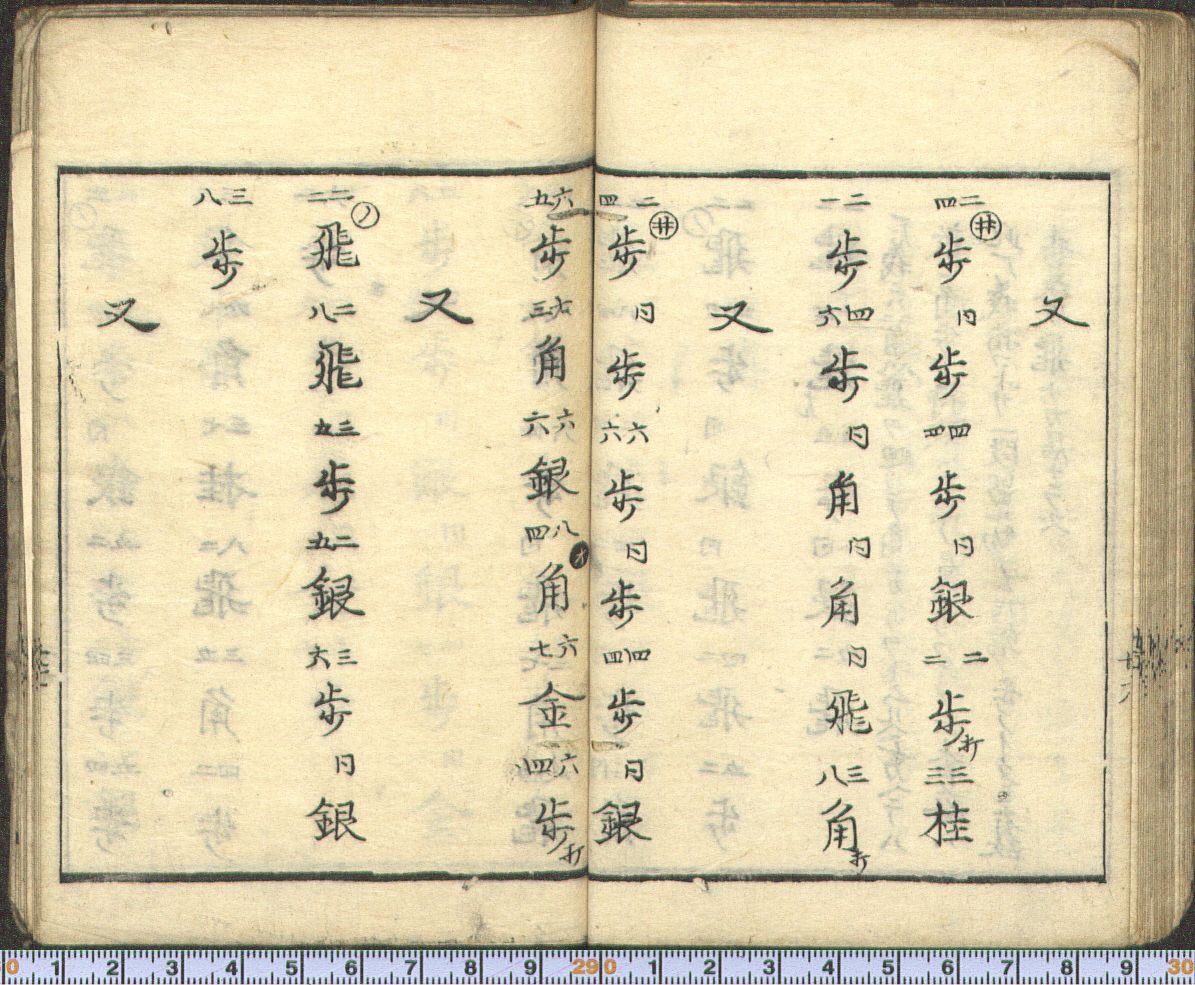 又
㊁四歩 同歩 四四歩 同銀 二二歩打 三三桂
二一歩 四六歩 同角 同角 同飛 三八角打
又
二四歩 廾 同歩 六六歩 同歩 四四歩 同銀
六五歩 七三角 六六銀 八四角 オ 六七金 六四歩打
又
二二飛 ノ 二八飛 三五歩 二五銀 三六歩 同銀
三八歩
又
廿六
0 1 2 3 4 5 6 7 8 9 290 1 2 3 4 5 6 7 8 9 30